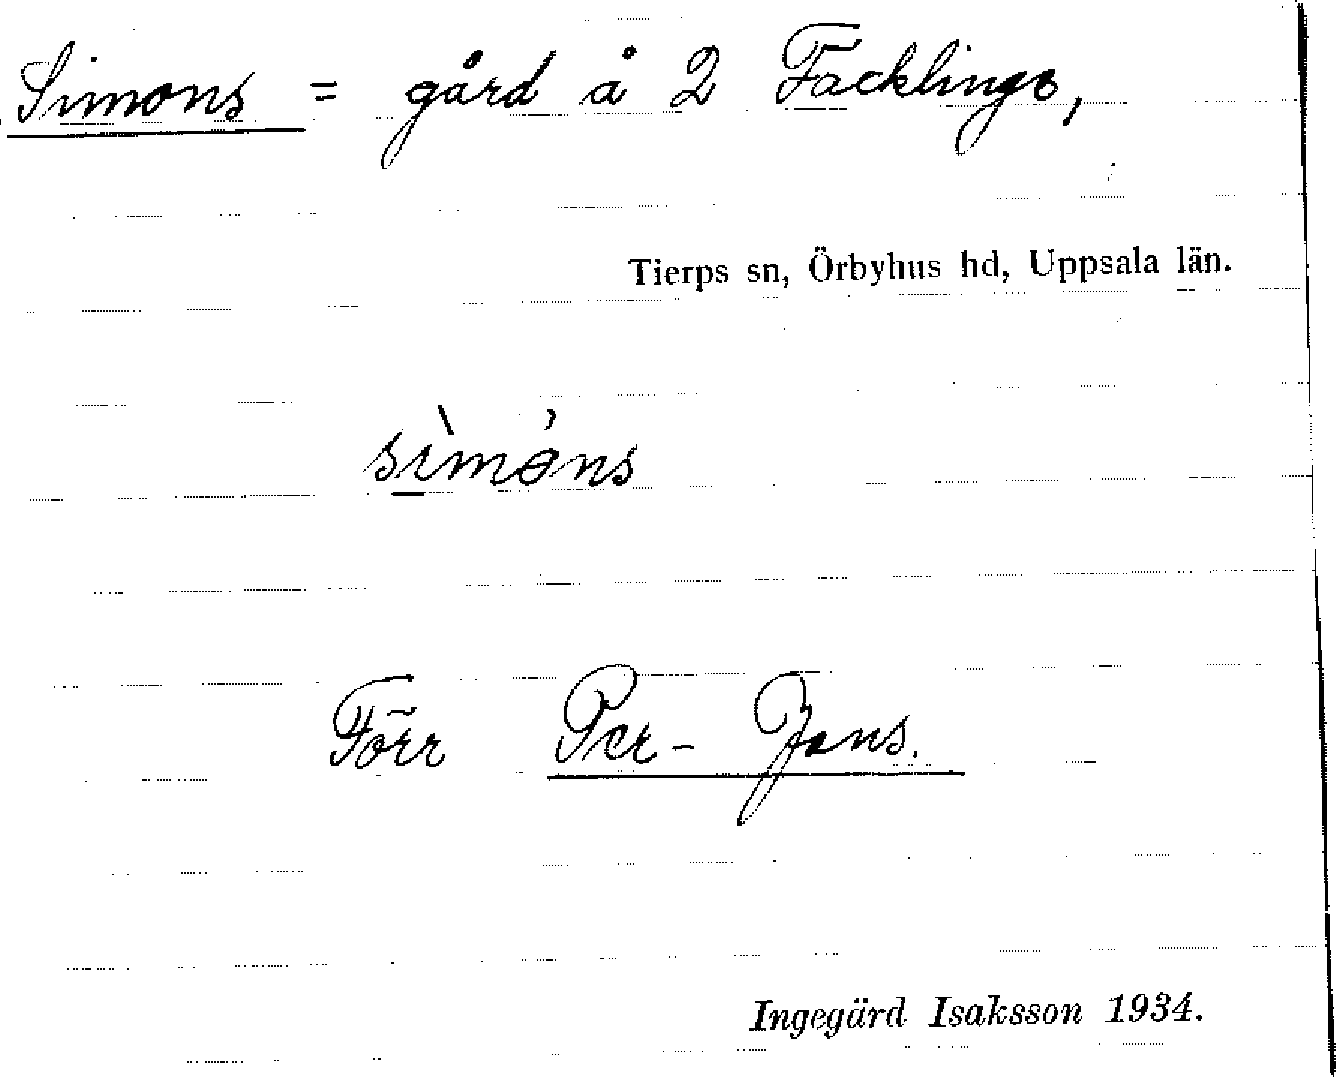 Simons = gård å 2 Fäcklinge,
Tierps sn, Örbyhus hd, Uppsala län.
sìmǝ́ns
Förr Per-Jans.
Ingegärd Isaksson 1934.